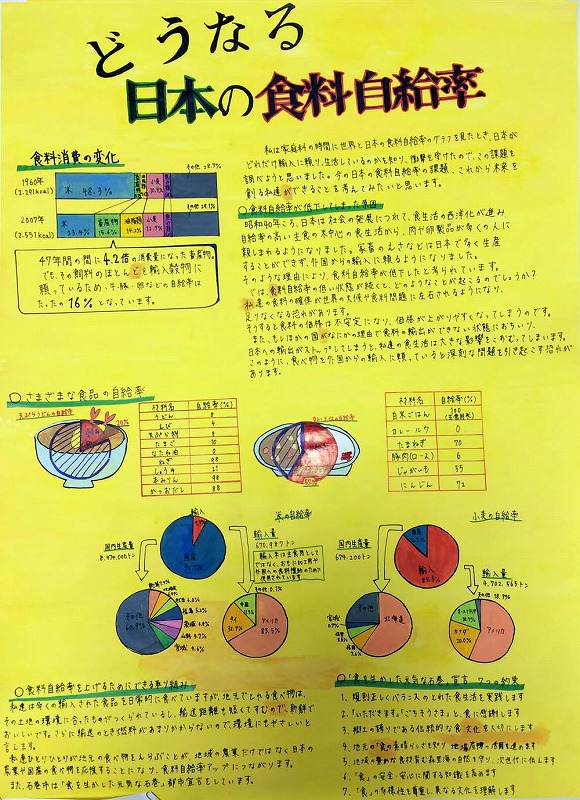 どうなる
日本の食料自給率
食料消費の変化
1960年
(2.291kcal)
米 48.3%
その他
2007年
(2.551kcal)
米 23.4%
畜産物 15.4%
油脂類 14.2%
小麦
その他
47年間の間に4.2倍の消費量になった畜産物。
でも、その飼料のほとんどを輸入穀物に
頼っているため、牛・豚・卵などの自給率は
たったの16%となっています。
私は家庭科の時間に世界と日本の食料自給率のグラフを見たとき、日本が
どれだけ輸入に頼り、生活しているのかを知り、衝撃を受けたので、この課題を
調べようと思いました。今の日本の食料自給率の課題、これから未来を
創る私達ができることを考えてみたいと思います。
○食料自給率が低下してしまった原因
昭和40年ころ、日本は社会の発展につれて、食生活の西洋化が進み
自給率の高い主食の米中心の食生活から、肉や卵製品が多くの人に
親しまれるようになりました。家畜のえさなどは日本で多く生産
することができず、外国からの輸入に頼るようになりました。
そのような理由により、食料自給率が低下したと考られています。
では、食料自給率の低い状態が続くと、どのようなことが起こるのでしょうか?
私達の食料の確保が世界の天候や食料問題に左右されるようになり、
足りなくなる恐れがあります。
そうすると食料の価格は不安定になり、価格が上がりやすくなってしまうのです。
また、もしほかの国がなにかの理由で食料の輸出ができない状態におちいり、
日本への輸出がストップしてしまうと、私達の食生活は大きな影響をこおむってしまいます。
このように、食べ物を外国からの輸入に頼っていると深刻な問題を引き起こす恐れが
あります。
○さまざまな食品の自給率
天ぷらうどんの自給率
20%
材料名 自給率(%)
うどん 8
えび 4
天ぷら粉 8
たまご 10
なたね油 0
ねぎ
しょうゆ 21
本みりん 98
かつおだし 88
カレーライスの自給率
材料名 自給率(%)
白米ごはん 100 (主食用米)
カレールウ 0
たまねぎ 70
豚肉(ロース) 6
じゃがいも 55
にんじん 72
米の自給率
輸入
国産
国内生産量
8,474,000トン
輸入量
670,987トン
輸入米は主食用として
ではなく、おもに加工用や
外国への食料援助のために
使用されています
その他 60.9%
新潟
北海道
秋田
福島 5.2%
茨城
山形 4.7%
宮城 4.6%
その他 0.1%
中国
タイ
アメリカ
小麦の自給率
国産
輸入
国内生産量
674,200トン
輸入量
4,702,565トン
その他
北海道
福岡
佐賀
宮城
その他
オーストラリア
カナダ 20.0%
アメリカ
○食料自給率を上げるためにできる取り組み
私達は多くの輸入された食品を日常的に食べていますが、地元でとれる食べ物は、
その土地の環境に合ったものがつくられているし、輸送距離も短くてすむので、新鮮で
おいしいです。さらに輸送のとき燃料があまりかからないので、環境にもやさしいと
言えます。
私達ひとりひとりが地元の食べ物をえらぶことが、地域の農業だけではなく日本の
農業や国産の食べ物を応援することになり、食料自給率アップにつながります。
また、石巻市は「食を生かした元気な石巻」都市宣言をしています。
○「食を生かした元気な石巻」宣言 7つの約束
1、規則正しくバランスのとれた食生活を実践します
2、「いただきます。」「ごちそうさま」と、食に感謝します
3、郷土の誇りである伝統的な食文化を大切にします
4、地元の「食」の素晴らしさを知り、地場産物の活用を進めます
5、地域の豊かな食材育む森里海の自然を守り、次世代に伝えます
6、「食」の安全・安心に関する知識を高めます
7、「食」の多様性を尊重し、異なる文化を理解します